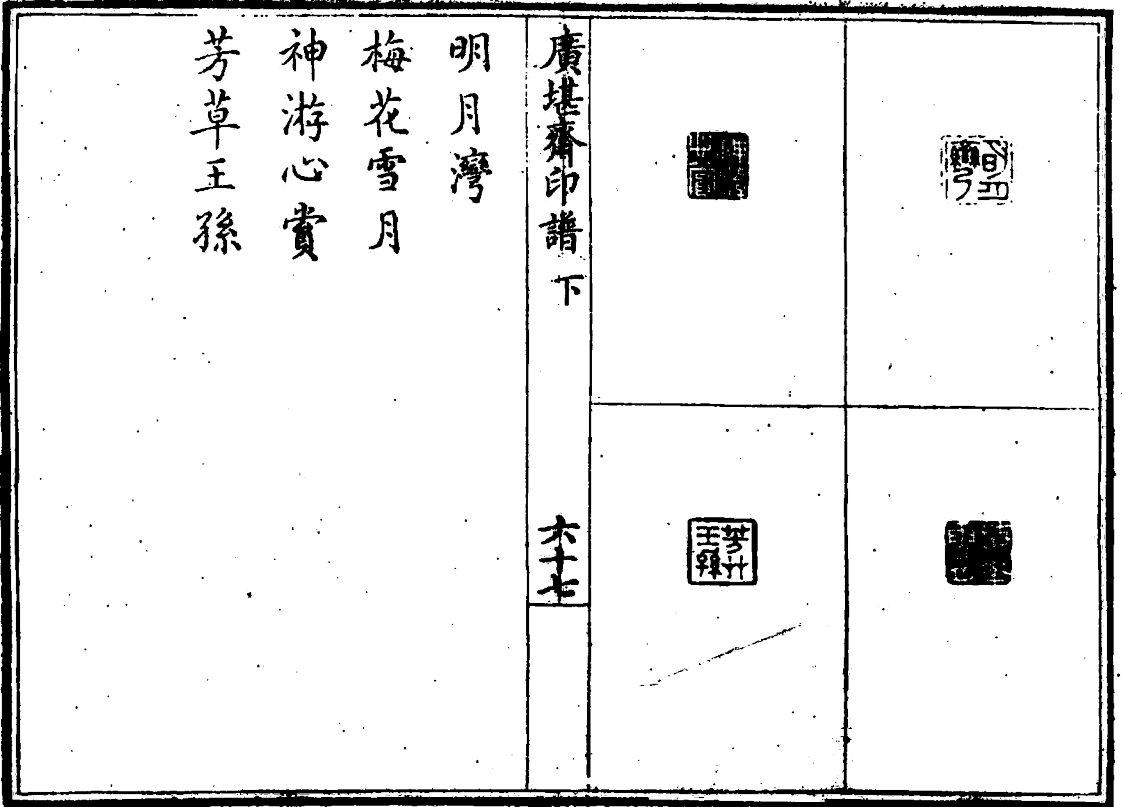 芳艸王孫
廣堪齋印譜 下
六十七
明月灣
梅花雪月
神游心賞
芳草王孫